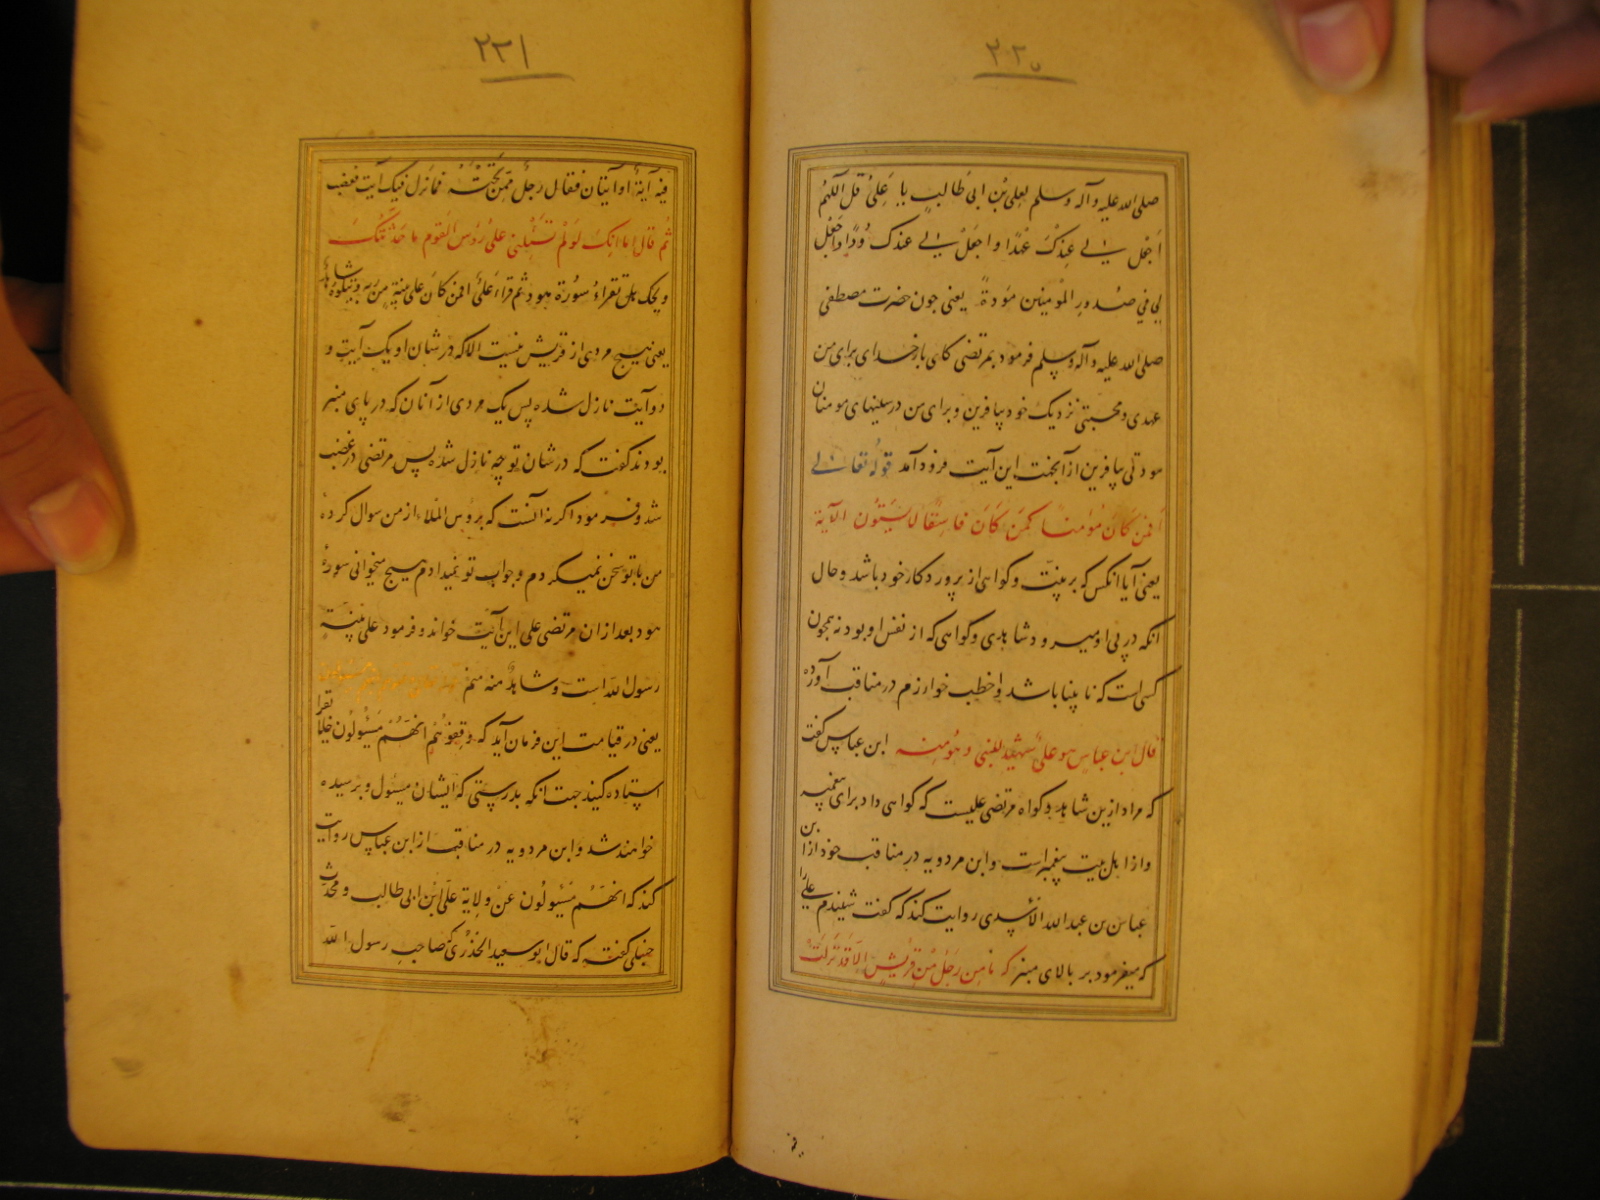 ۲۲۰
صلی الله علیه وآله وسلم لعلی بن ابی طالب یا علی قل اللهم
اجعل لی عندک عهدا واجعل لی عندک ودا واجعل
لی فی صدور المومنین مودة یعنی چون حضرت مصطفی
صلی الله علیه وآله وسلم فرمود بمرتضی کای بارخدای برای من
عهدی ومحبتی نزدیک خود بیافرین وبرای من در سینهای مومنان
مودتی بیافرین ازآنجهت این آیت فرود آمد قوله تعالی
افمن کان مؤمنا کمن کان فاسقا لا یستون الآیة
یعنی آیا آنکس که بر بینت وکواهی از پروردکار خود باشد وحال
آنکه در پی او میرود شاهدی وکواهی که از نفس او بود نه همچون
کسی است که نابینا باشد واخطب خوارزم در مناقب آورده
قال ابن عباس هو علی شهید للنبی وهو منه ابن عباس کفت
که مراد ازین شاهد وکواه مرتضی علیست که کواهی داد برای پیغمبر
واز اهل بیت پیغمبر است وابن مردویه در مناقب خود از ابن
عباس بن عبد الله الاسدی روایت کند که کفت شنیدم علی را
که میفرمود بر بالای منبر که ما من رجل من قریش الا قد نزلت
۲۲۱
فیه آیة او آیتان فقال رجل ممن تحته فما نزل فیک آیت فغضب
ثم قال اما انک لو لم تسئلنی علی رؤس القوم ما حدثتک
ویحک هل تقراء سورة هود ثم قراء علی افمن کان علی بینة من ربه ویتلوه شاهد
یعنی هیچ مردی از قریش نیست الا که در شان او یک آیت و
دو آیت نازل شده پس یک مردی از آنان که در پای منبر
بودند کفت که در شان تو چه نازل شده پس مرتضی در غضب
شد وفرمود اکر نه آنست که بروس الملاء از من سوال کرده
من با تو سخن نمیکردم وجواب تو نمیدادم هیچ میخوانی سورهٔ
هود بعد از ان مرتضی علی این آیت خواند وفرمود علی بینة
رسول الله است وشاهد منه منم
یعنی در قیامت این فرمان آید که وقفوهم انهم مسؤلون
استاده کنید جهت آنکه بدرستی که ایشان مسئول وپرسیده
خواهند شد وابن مردویه در مناقب از ابن عباس روایت
کند که انهم مسیولون عن ولایة علی ابن ابی طالب ومحدث
حنبلی کفته که قال ابو سعید الخدری صاحب رسول الله